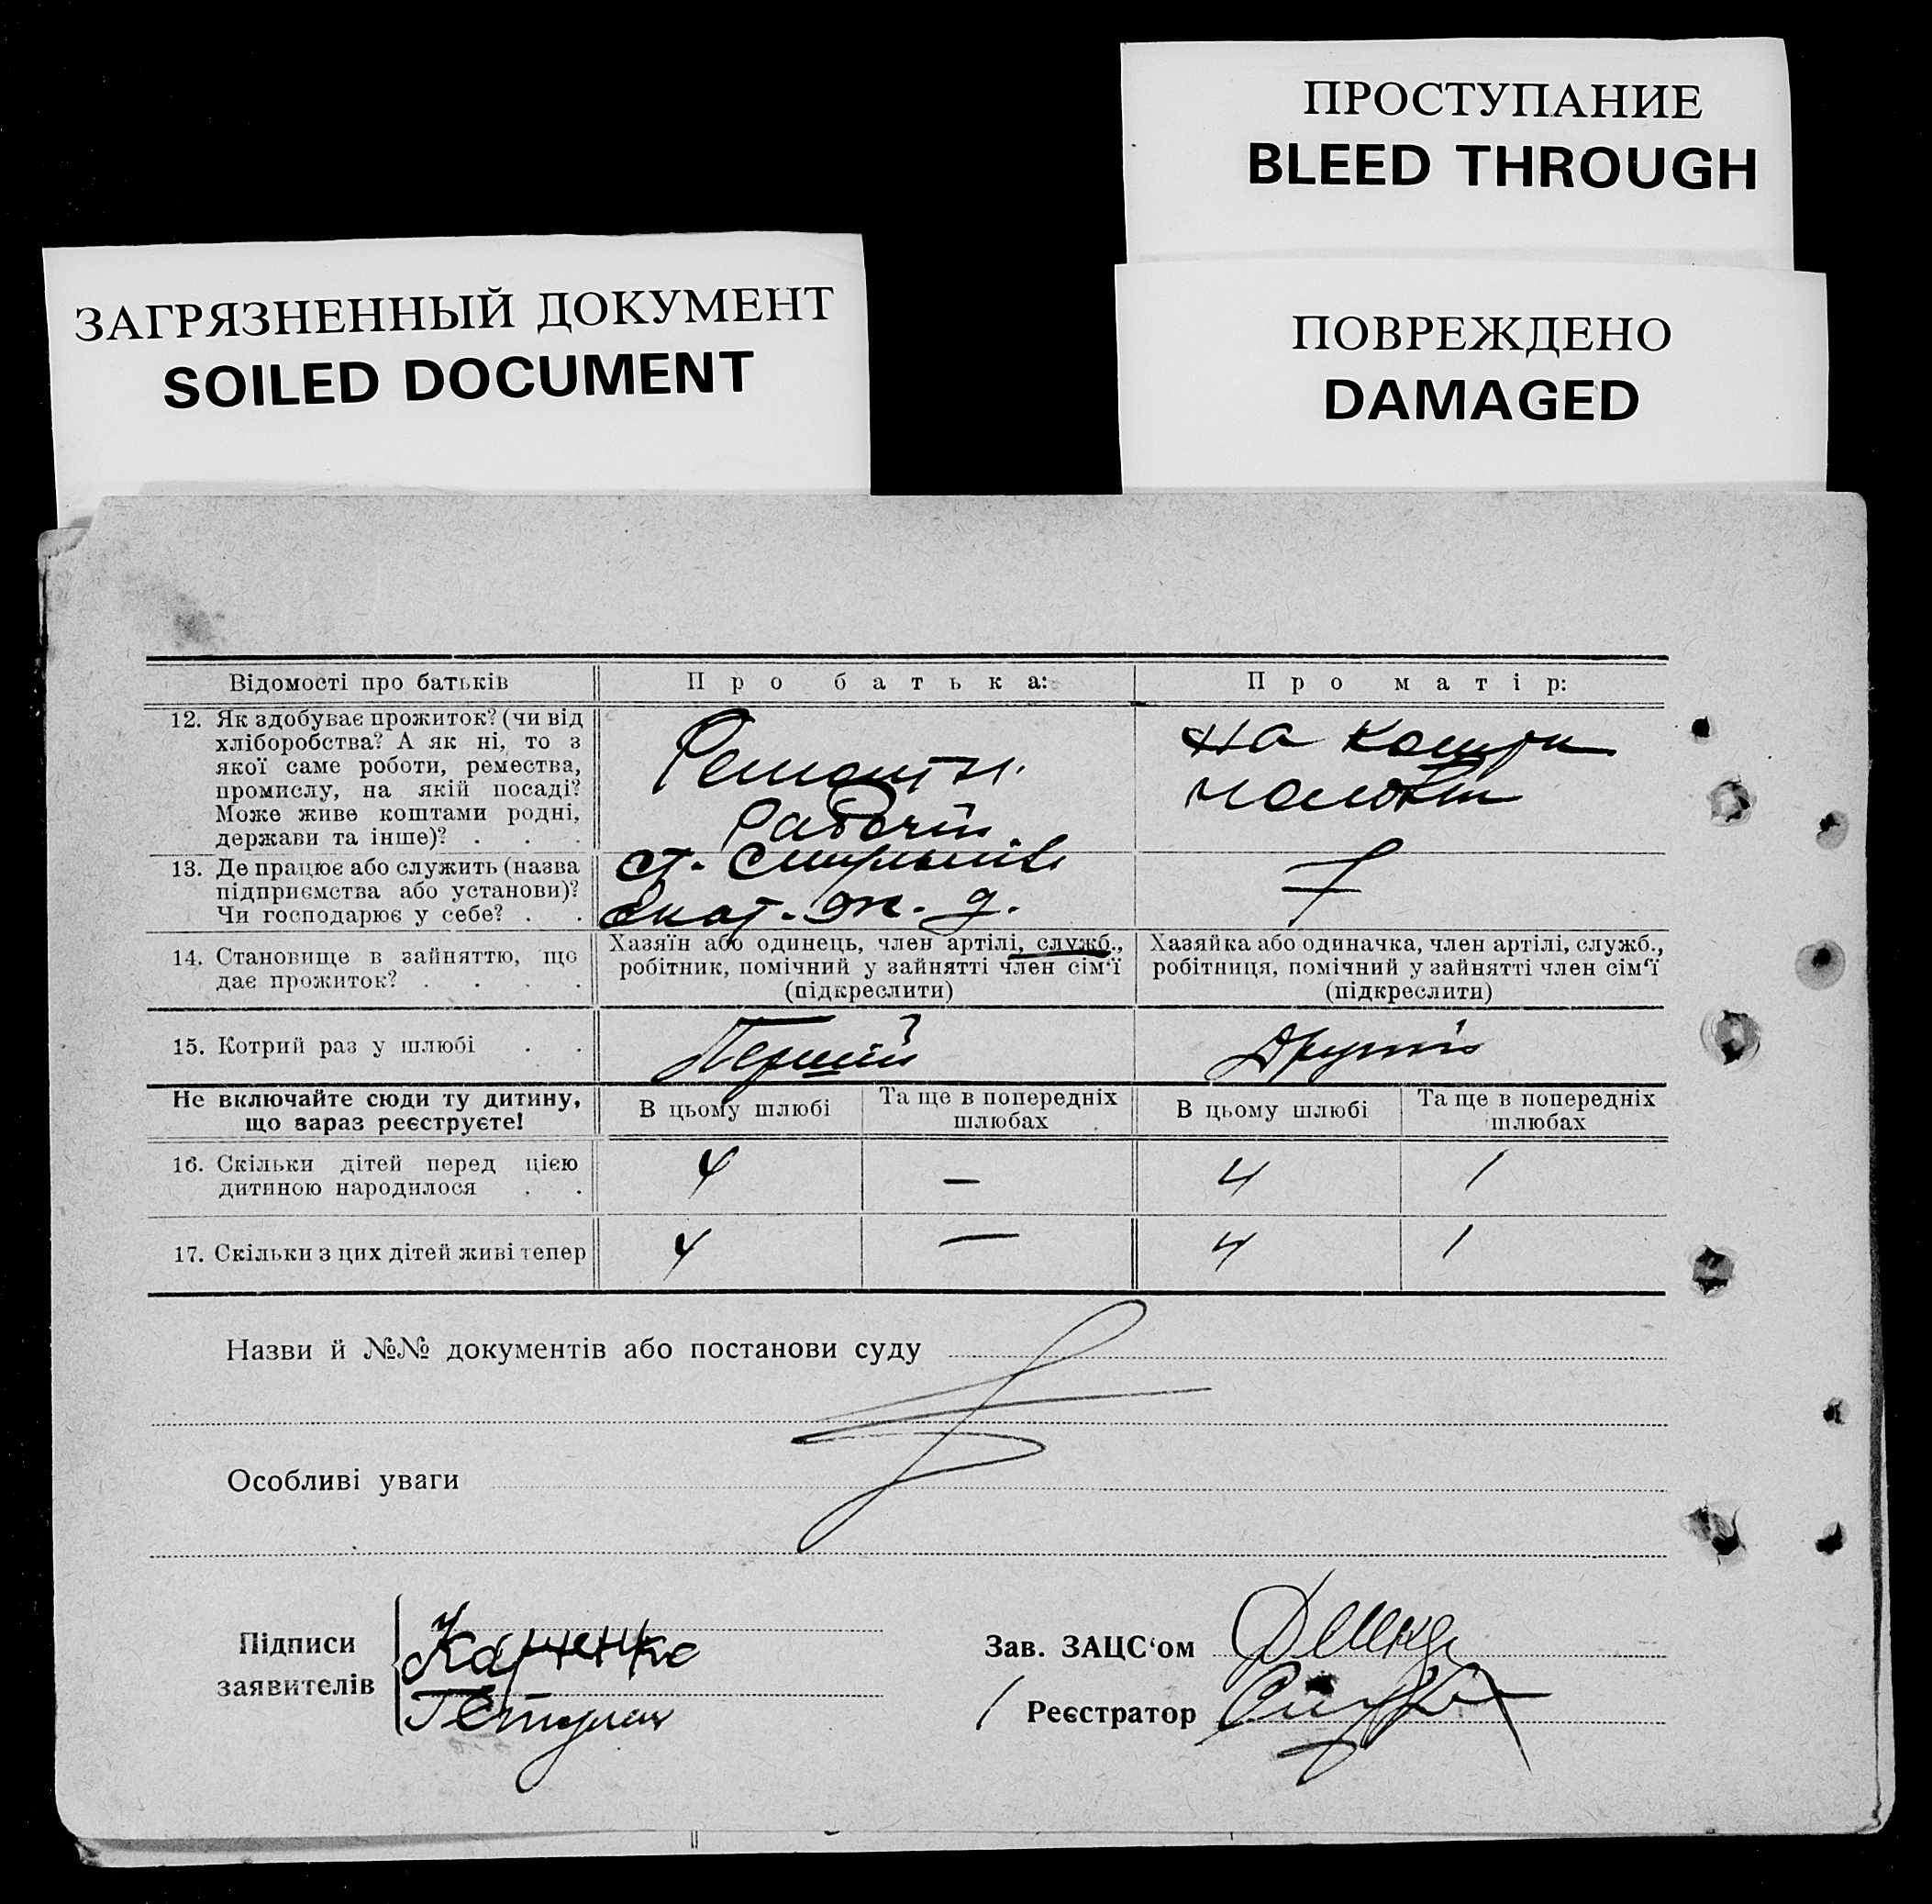 ПРОСТУПАНИЕ
BLEED THROUGH
ЗАГРЯЗНЕННЫЙ ДОКУМЕНТ
SOILED DOCUMENT
ПОВРЕЖДЕНО
DAMAGED
Відомості про батьків
Про батька:
Про матір:
12. Як здобуває прожиток? (чи від
хліборобства? А як ні, то з
якої саме роботи, ремества,
промислу, на якій посаді?
Може живе коштами родні,
держави та інше)? . . .
Ремонтн.
Рабочій
На кошти
13. Де працює або служить (назва
підприємства або установи)?
Чи господарює у себе? . .
ст.
Екат. ж. д.
14. Становище в зайняттю, що
дає прожиток? . . . .
Хазяїн або одинець, член артілі, служб.,
робітник, помічний у зайнятті член сім‘ї
(підкреслити)
Хазяйка або одиначка, член артілі, служб.,
робітниця, помічний у зайнятті член сім‘ї
(підкреслити)
15. Котрий раз у шлюбі . .
Перший
Другий
Не включайте сюди ту дитину,
що зараз реєструєте!
В цьому шлюбі
Та ще в попередніх
шлюбах
В цьому шлюбі
Та ще в попередніх
шлюбах
16. Скільки дітей перед цією
дитиною народилося . .
4 — 4 1
17. Скільки з цих дітей живі тепер
4 — 4 1
Назви й №№ документів або постанови суду
Особливі уваги
Підписи
заявителів
Зав. ЗАЦС‘ом
Реєстратор